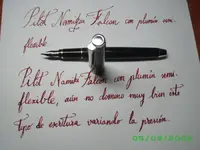 Pilot Namiki Falcon con plumín semi
flexible
Pilot Namiki Falcon con plumín semi-
flexible, aún no domino muy bien este
Tipo de escritura variando la presión.